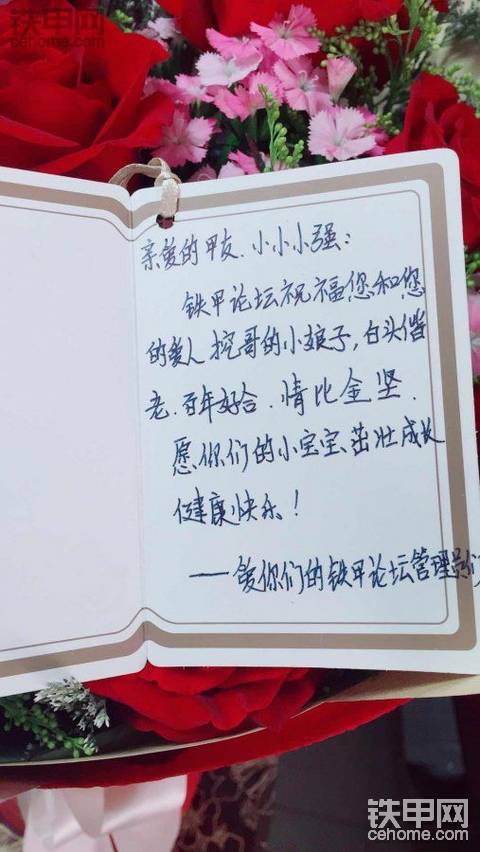 铁甲网
cehome.com
亲爱的甲友、小小小强：
铁甲论坛祝福您和您
的爱人挖哥的小娘子，白头偕
老、百年好合、情比金坚．
愿你们的小宝宝茁壮成长
健康快乐！
——爱你们的铁甲论坛管理员们
铁甲网
cehome.com